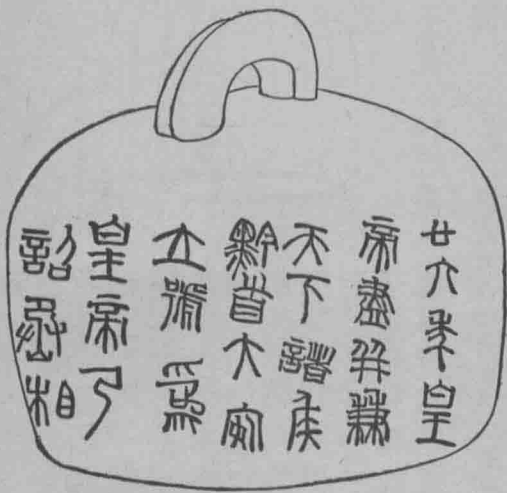 廿六年皇
帝盡并兼
天下諸矦
黔首大安
立號爲
皇帝乃
詔丞相